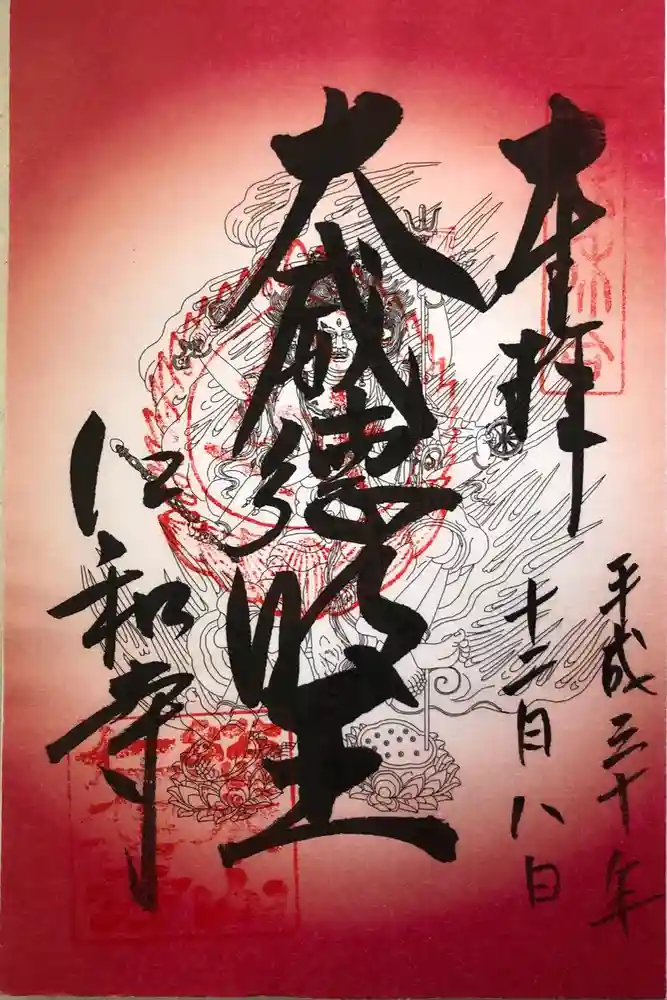 奉拝
平成三十年
十二月八日
大威徳明王
仁和寺